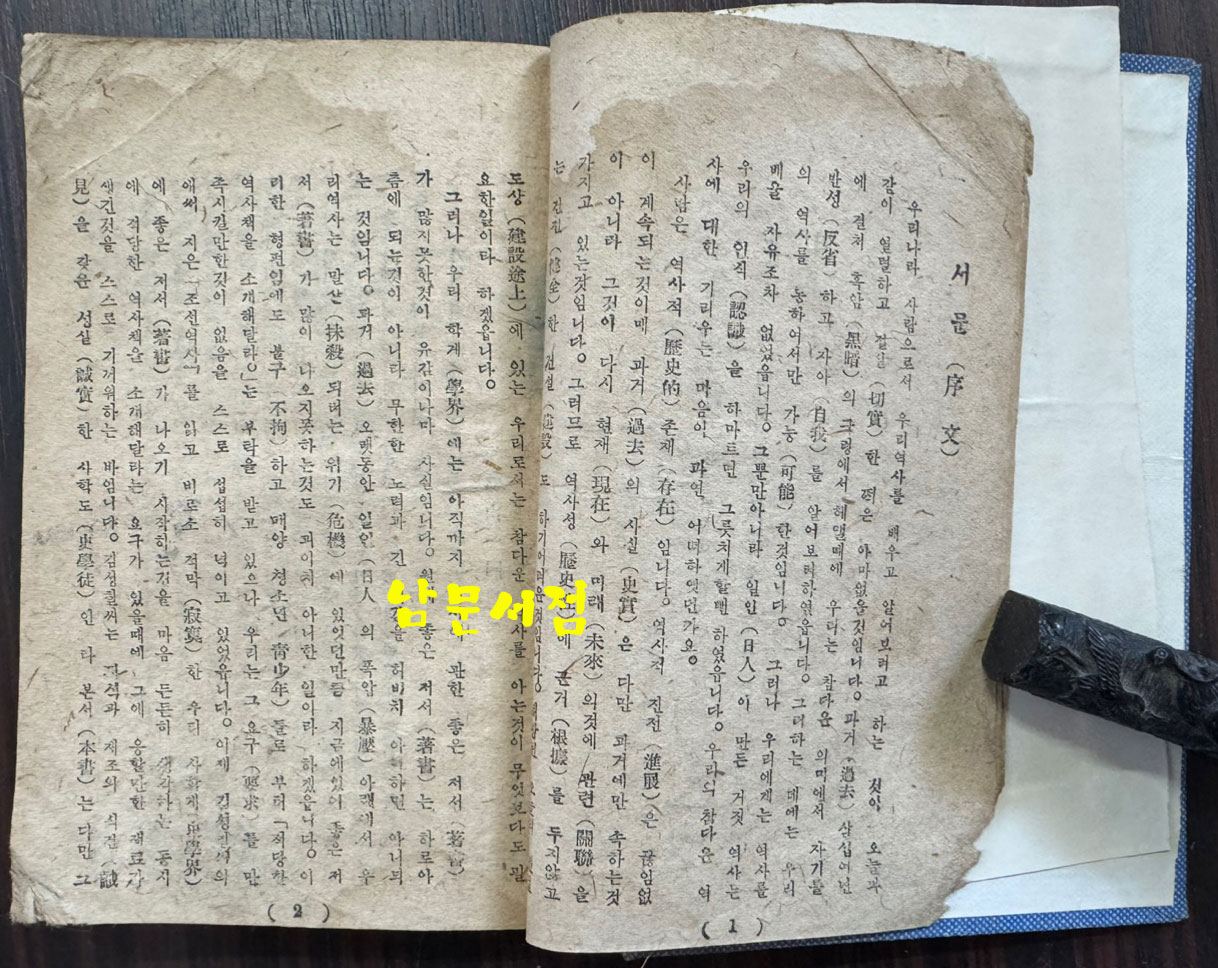 서문 (序文)
우리나라 사람으로서 우리역사를 배우고 알어보려고 하는 것이 오늘과
같이 열렬하고 절실 (切實) 한 때은 아마없을것입니다。과거 (過去) 삼십여년
에 걸쳐 흑암 (黑暗) 의 구렁에서 헤맬때에 우리는 참다운 의미에서 자기들
반성 (反省) 하고 자아 (自我) 를 알어보려하였읍니다。그러하는 데에는 우리
의 역사를 통하여서만 가능 (可能) 한것입니다。 그러나 우리에게는 역사를
배울 자유조차 없었읍니다。그뿐만아니라 일인 (日人) 이 만든 거짓 역사는
우리의 인식 (認識) 을 하마트면 그릇치게할뻔 하였읍니다。우리의 참다운 역
사에 대한 기리우는 마음이 과연 어떠하엿던가요。
사람은 역사적 (歷史的) 존재 (存在) 입니다。역사적 진전 (進展) 은 끊임없
이 계속되는것이매 과거 (過去) 의 사실 (史實) 은 다만 과거에만 속하는것
이 아니라 그것이 다시 현재 (現在) 와 미래 (未來) 의것에 관련 (關聯) 을
가지고 있는것입니다。그러므로 역사성 (歷史性) 에 근거 (根據) 를 두지않고
는 건전 (健全) 한 건설 (建設) 도 하기어려운것입니다。
(1)
도상 (建設途上) 에 있는 우리로서는 참다운 역사를 아는것이 무엇보다도 필
요한일이라 하겠읍니다。
그러나 우리 학계 (學界) 에는 아직까지 관한 좋은 저서 (著書)
가 많지못한것이 유감이나마 사실입니다。 좋은 저서 (著書) 는 하로아
츰에 되는것이 아니라 무한한 노력과 긴 을 허비치 아니하면 아니되
는 것입니다。과거 (過去) 오랫동안 일인 (日人) 의 폭압 (暴壓) 아래에서 우
리역사는 말산 (抹殺) 되려는 위기 (危機) 에 있엇던만큼 지금에있어 좋은 저
서 (著書) 가 많이 나오지못하는것도 괴이치 아니한 일이라 하겠읍니다。이
러한 형편임에도 불구 (不拘) 하고 매양 청소년 (靑少年) 들로 부터 「적당한
역사책을 소개해달라」는 부탁을 받고 있으나 우리는 그 요구 (要求) 를 만
족시킬만한것이 없음을 스스로 섭섭히 녁이고 있었읍니다。이제 김성칠씨의
애써 지은 「조선역사」를 읽고 비로소 적막 (寂寞) 한 우리 사학계 (史學界)
에 좋은 저서 (著書) 가 나오기 시작하는것을 마음 든든히 생각하는 동시
에 적당한 역사책을 소개해달라는 요구가 있을때에 그에 응할만한 재료가
생긴것을 스스로 기꺼워하는 바입니다。김성칠씨는 과석과 제조의 식견 (識
見) 을 갖은 성실 (誠實) 한 사학도 (史學徒) 인 타 본서 (本書) 는 다만 그
(2)
남문서점